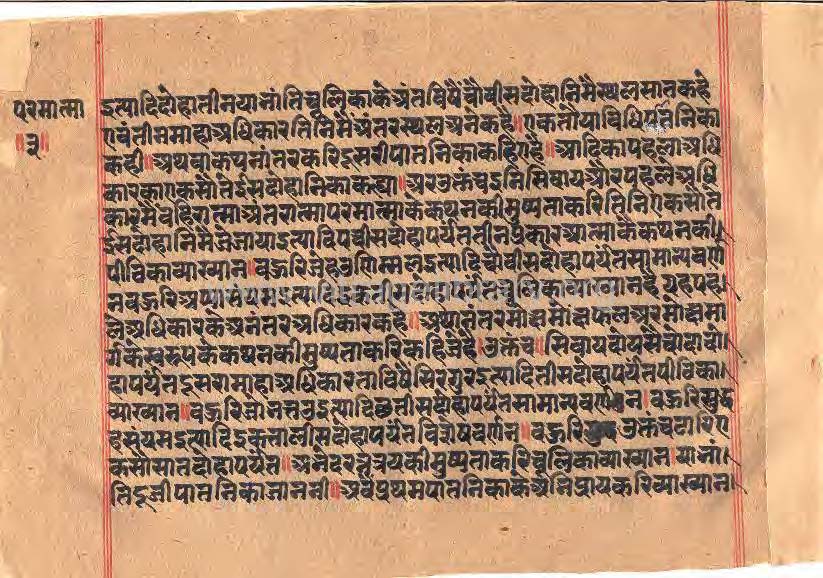 परमात्मा
॥३॥
इत्यादि दोहा तीन यानांति चूलिकाके अंतविषैं चौवीस दोहानिमैं स्थल सात कहे
एवं तीन माहा अधिकारतिनिमैं अंतरस्थल अनेक है॥ एक तो या विधि पातनिका
कही॥ अथवा कथनांतर करि दूसरी पातनिका कहिए है॥ आदि का पहला अधि
कार का एकसो तेईस दोहानिका कह्या॥ अर उक्तंच इनि सिवाय और पहले अधि
कारमैं वहिरात्मा अंतरात्मा परमात्मा के कथन की मुष्यता करि तिनि एकसो ते
ईस दोहानिमैं जे जाया इत्यादि पचीस दोहा पर्यंत तीन प्रकार आत्मा के कथन की
पीठिका व्याष्यान॥ वहुरि जेहउ णिम्मलु इत्यादि चोवीस दोहा पर्यंत सामान्य वर्ण
न वहुरि अप्पा
चूलिका व्याख्यान है यह पह
ले अधिकार के अनंतर अधिकार कहे॥ अथानंतर मोक्ष मोक्षफल अर मोक्ष मा
र्ग के स्वरूप के कथन की मुष्यता करि कहिजे है। उक्तंच॥ सिवाय दोयसै चोदा दो
हा पर्यंत दूसरा माहा अधिकार ता विषैं सिरि गुर इत्यादि तीस दोहा पर्यंत पीठिका
व्याख्यान॥ वहुरि जो भत्तउ इत्यादि छतीस दोहा पर्यंत सामान्य वर्णन। वहुरि सुद्ध
ह संयम इत्यादि इकतालीस दोहा पर्यंत विशेष वर्णन॥ वहुरि उक्तंच टारि ए
कसो सात दोहा पर्यंत॥ अभेद रत्नत्रय की मुष्यता करि चूलिका व्याख्यान। या भां
ति दूजी पातनिका जाननी॥ अव प्रथम पातनिका के अभिप्राय करि व्याख्यान।